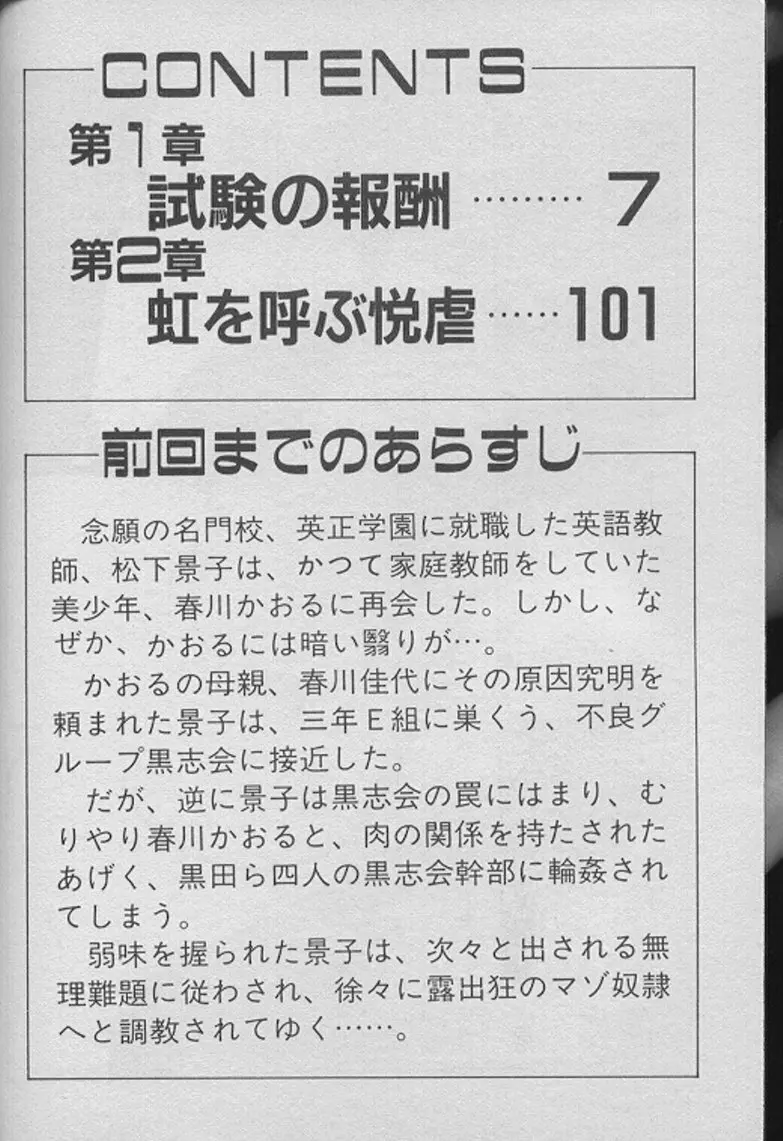 CONTENTS
第1章
試験の報酬 ……… 7
第2章
虹を呼ぶ悦虐 …… 101
前回までのあらすじ
念願の名門校、英正学園に就職した英語教
師、松下景子は、かつて家庭教師をしていた
美少年、春川かおるに再会した。しかし、な
ぜか、かおるには暗い翳りが…。
かおるの母親、春川佳代にその原因究明を
頼まれた景子は、三年E組に巣くう、不良グ
ループ黒志会に接近した。
だが、逆に景子は黒志会の罠にはまり、む
りやり春川かおると、肉の関係を持たされた
あげく、黒田ら四人の黒志会幹部に輪姦され
てしまう。
弱味を握られた景子は、次々と出される無
理難題に従わされ、徐々に露出狂のマゾ奴隷
へと調教されてゆく……。